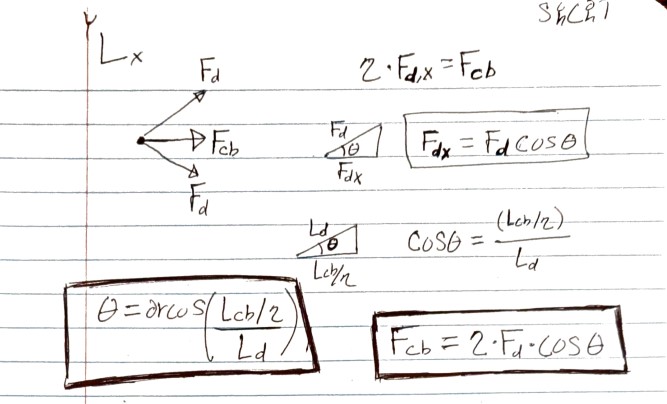 y
x
Fd
Fcb
Fd
2·Fd,x = Fcb
Fd
θ
Fdx
Fdx = Fd cosθ
Ld
θ
Lcb/2
cosθ = (Lcb/2) / Ld
θ = arcos(Lcb/2 / Ld)
Fcb = 2·Fd·cosθ